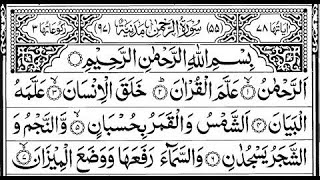 اٰيَاتُهَا ٧٨ (٥٥) سُوْرَةُ الرَّحْمٰنِ مَدَنِيَّةٌ (٩٧) رُكُوْعَاتُهَا ٣
بِسْمِ اللّٰهِ الرَّحْمٰنِ الرَّحِيْمِ
اَلرَّحْمٰنُ ۙ﴿۱﴾ عَلَّمَ الْقُرْاٰنَ ؕ﴿۲﴾ خَلَقَ الْاِنْسَانَ ۙ﴿۳﴾ عَلَّمَهُ
الْبَيَانَ ﴿۴﴾ اَلشَّمْسُ وَ الْقَمَرُ بِحُسْبَانٍ ۪﴿۵﴾ وَّ النَّجْمُ وَ
الشَّجَرُ يَسْجُدٰنِ ﴿۶﴾ وَ السَّمَآءَ رَفَعَهَا وَ وَضَعَ الْمِيْزَانَ ۙ﴿۷﴾